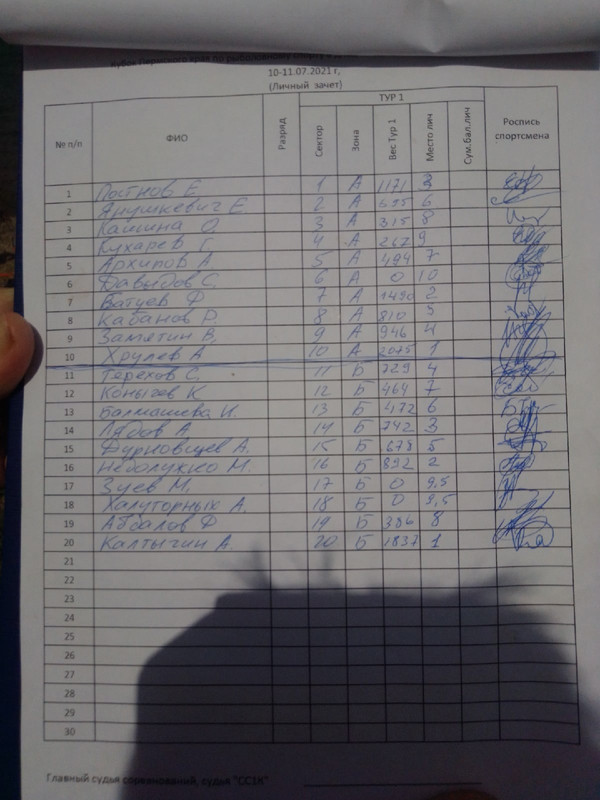 Кубок Пермского края по рыболовному спорту
10-11.07.2021 г,
(Личный зачет)
№ п/п ФИО Разряд ТУР 1 Роспись спортсмена
Сектор Зона Вес Тур 1 Место лич Сум.бал.лич
1 Постнов Е 1 А 1171 3
2 Ярушкевич Е 2 А 595 6
3 Кашина О, 3 А 315 8
4 Кухарев Г, 4 А 267 9
5 Архипов А 5 А 494 7
6 Давыдов С, 6 А 0 10
7 Ватуев Ф 7 А 1490 2
8 Кабанов Р. 8 А 810 5
9 Заметин В, 9 А 946 4
10 Хрулев А 10 А 2075 1
11 Терехов С. 11 Б 729 4
12 Конычев К 12 Б 464 7
13 Балмашева И. 13 Б 472 6
14 Лядов А. 14 Б 742 3
15 Дурновцев А. 15 Б 678 5
16 Неволужко М. 16 Б 892 2
17 Зуев М, 17 Б 0 9,5
18 Халуторных А. 18 Б 0 9,5
19 Аббалов Ф 19 Б 386 8
20 Калтычин А. 20 Б 1837 1
21
22
23
24
25
26
27
28
29
30
Главный судья соревнований, судья "СС1К"